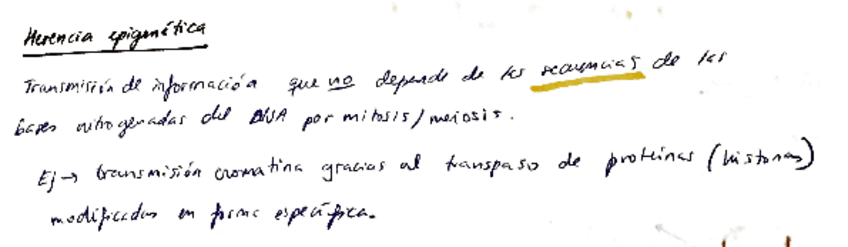 Herencia epigenética
Transmisión de información que no depende de las secuencias de las
bases nitrogenadas del DNA por mitosis/meiosis.
Ej → transmisión cromatina gracias al transpaso de proteínas (histonas)
modificadas en forma específica.